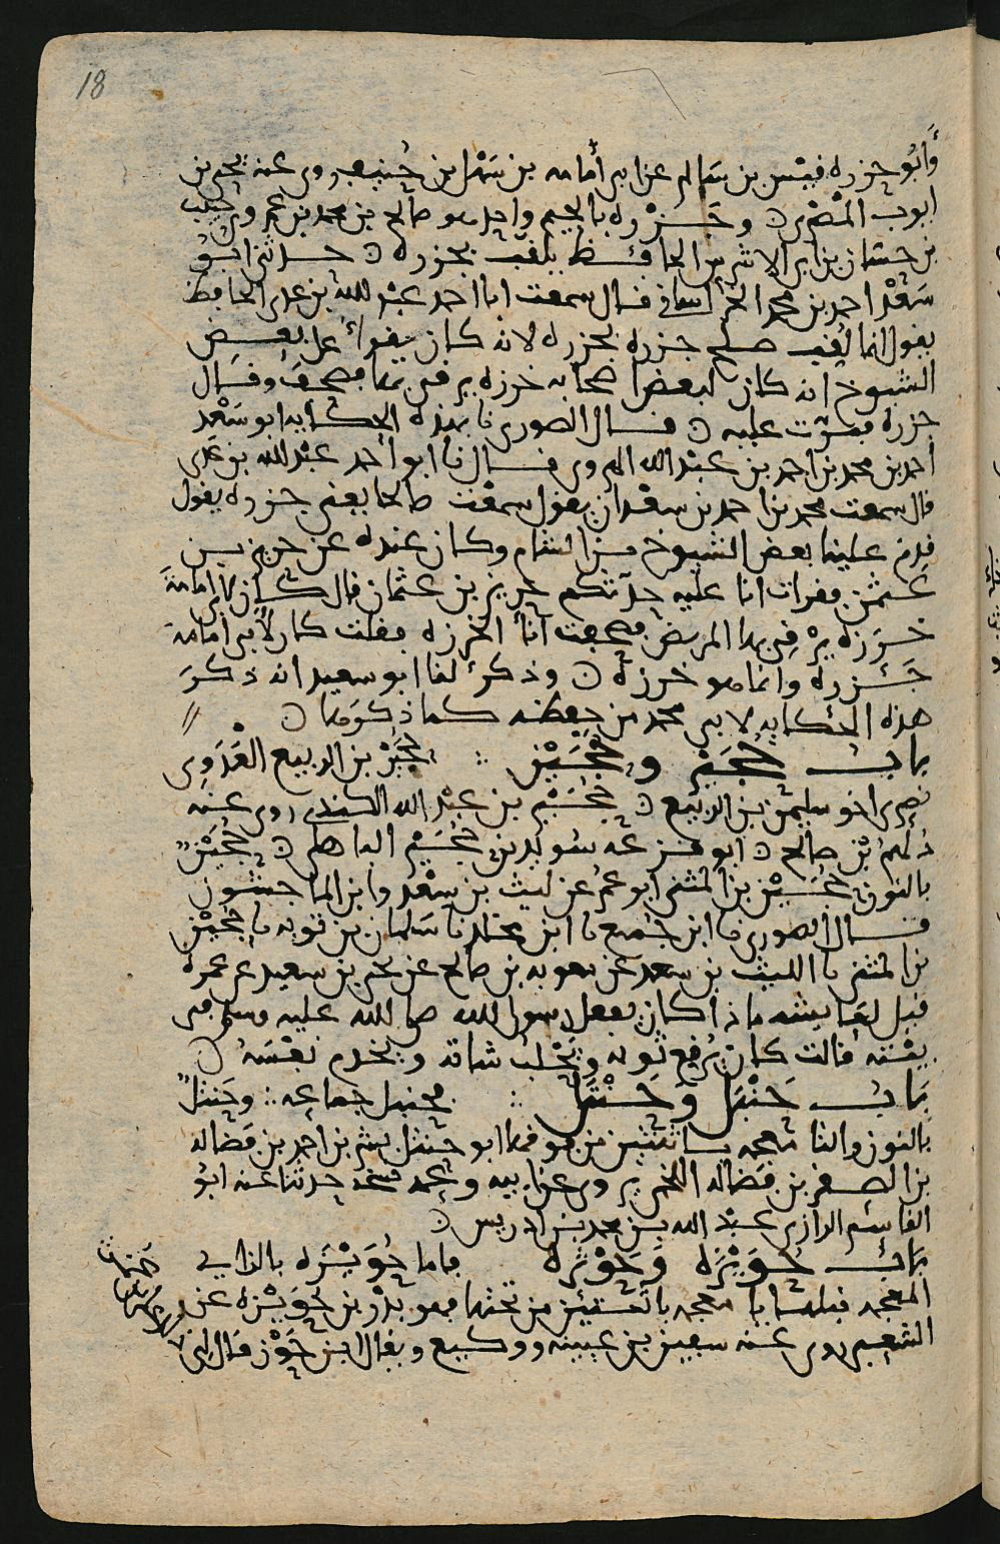 18
وأبو حزره قيس بن سالم عن ابى أمامه بن سهل بن حنيف روى عنه يحيى بن
ايوب المصرى ۞ وجَزَره بالجيم واحد هو صالح بن محمد بن عمرو بن حبيب
بن حسان بن ابى الاشرس الحافظ يلقب بجزره ۞ حدثنى ابو
سَعْد احمد بن محمد قال سمعت ابا احمد عبد الله بن عدى الحافظ
يقول انما لقب صلح جزره بجزره لانه كان يقرأ على بعض
الشيوخ انه كان لبعض اصحابه خرزه يرقى بها فصحف وقال
جزره فمرت عليه ۞ قال الصورى نا بهذه الحكايه ابو سَعْد
احمد بن محمد بن احمد بن عبد الله الهروى قال نا ابو أحمد عبد الله بن عدى
قال سمعت محمد بن احمد بن سعدان يقول سمعت صالحا يعنى جزره يقول
قدم علينا بعض الشيوخ من الشام وكان عنده عن حريز بن
عثمن فقرات انا عليه حدثكم حريز بن عثمان قال كان لابى امامة
خَرَزه يرْقى بها المريض فصحفت أنا الخرزه فقلت كان لأبى أمامة
جَزَره وانما هو خرزه ۞ وذكر لنا ابو سعيد انه ذكر
هذه الحكايه لابى محمد من حفظه كما ذكرها ۞
باب حُجَيْر و حُجَيْن حُجَيْر بن الربيع العَدَوى
بصرى اخو سليمن بن الربيع ۞ حُجَيْر بن عبد الله الكندى روى عنه
دلهم بن صالح ۞ ابو قزعه سُويد بن حُجَيْر الباهلى ۞ حُجَيْن
بالنون حُجَيْن بن المثنى ابو عُمر عن ليث بن سعد وابن الماجشون
قال الصورى نا ابن جُميع نا ابن مخلد نا سَلمان بن توبه نا حُجَيْن
بن المثنى نا الليث بن سعد عن معويه بن صالح عن يحيى بن سعيد عن عمره
قيل لعايشه ماذا كان يفعل رسول الله صلى الله عليه وسلم فى
بيته قالت كان يُرقع ثوبه ويَحْلُب شاته ويخدم نفسَه ۞
بَاب حَنْبَل وحَنْتَل فحنبل جماعه وحَنتل
بالنون والتا معجمه باثنتين من فوقها ابو حنتل بشر بن احمد بن فَضَاله
بن الصقر بن فَضَاله اللخمى يروى عن ابيه و حدثنا عنه ابو
القاسم الرازى عبد الله بن محمد بن ادريس ۞
بَاب حُوَيْزَه وحَوْثَره فاما حُوَيْزَه بالزاى
المعجمه قبلها يا معجمه باثنتين من تحتها فهو بدْر بن حُوَيْزه عن
الشعبى روى عنه سفين بن عيينه ووكيع ويقال ابن حَوْز قال لى